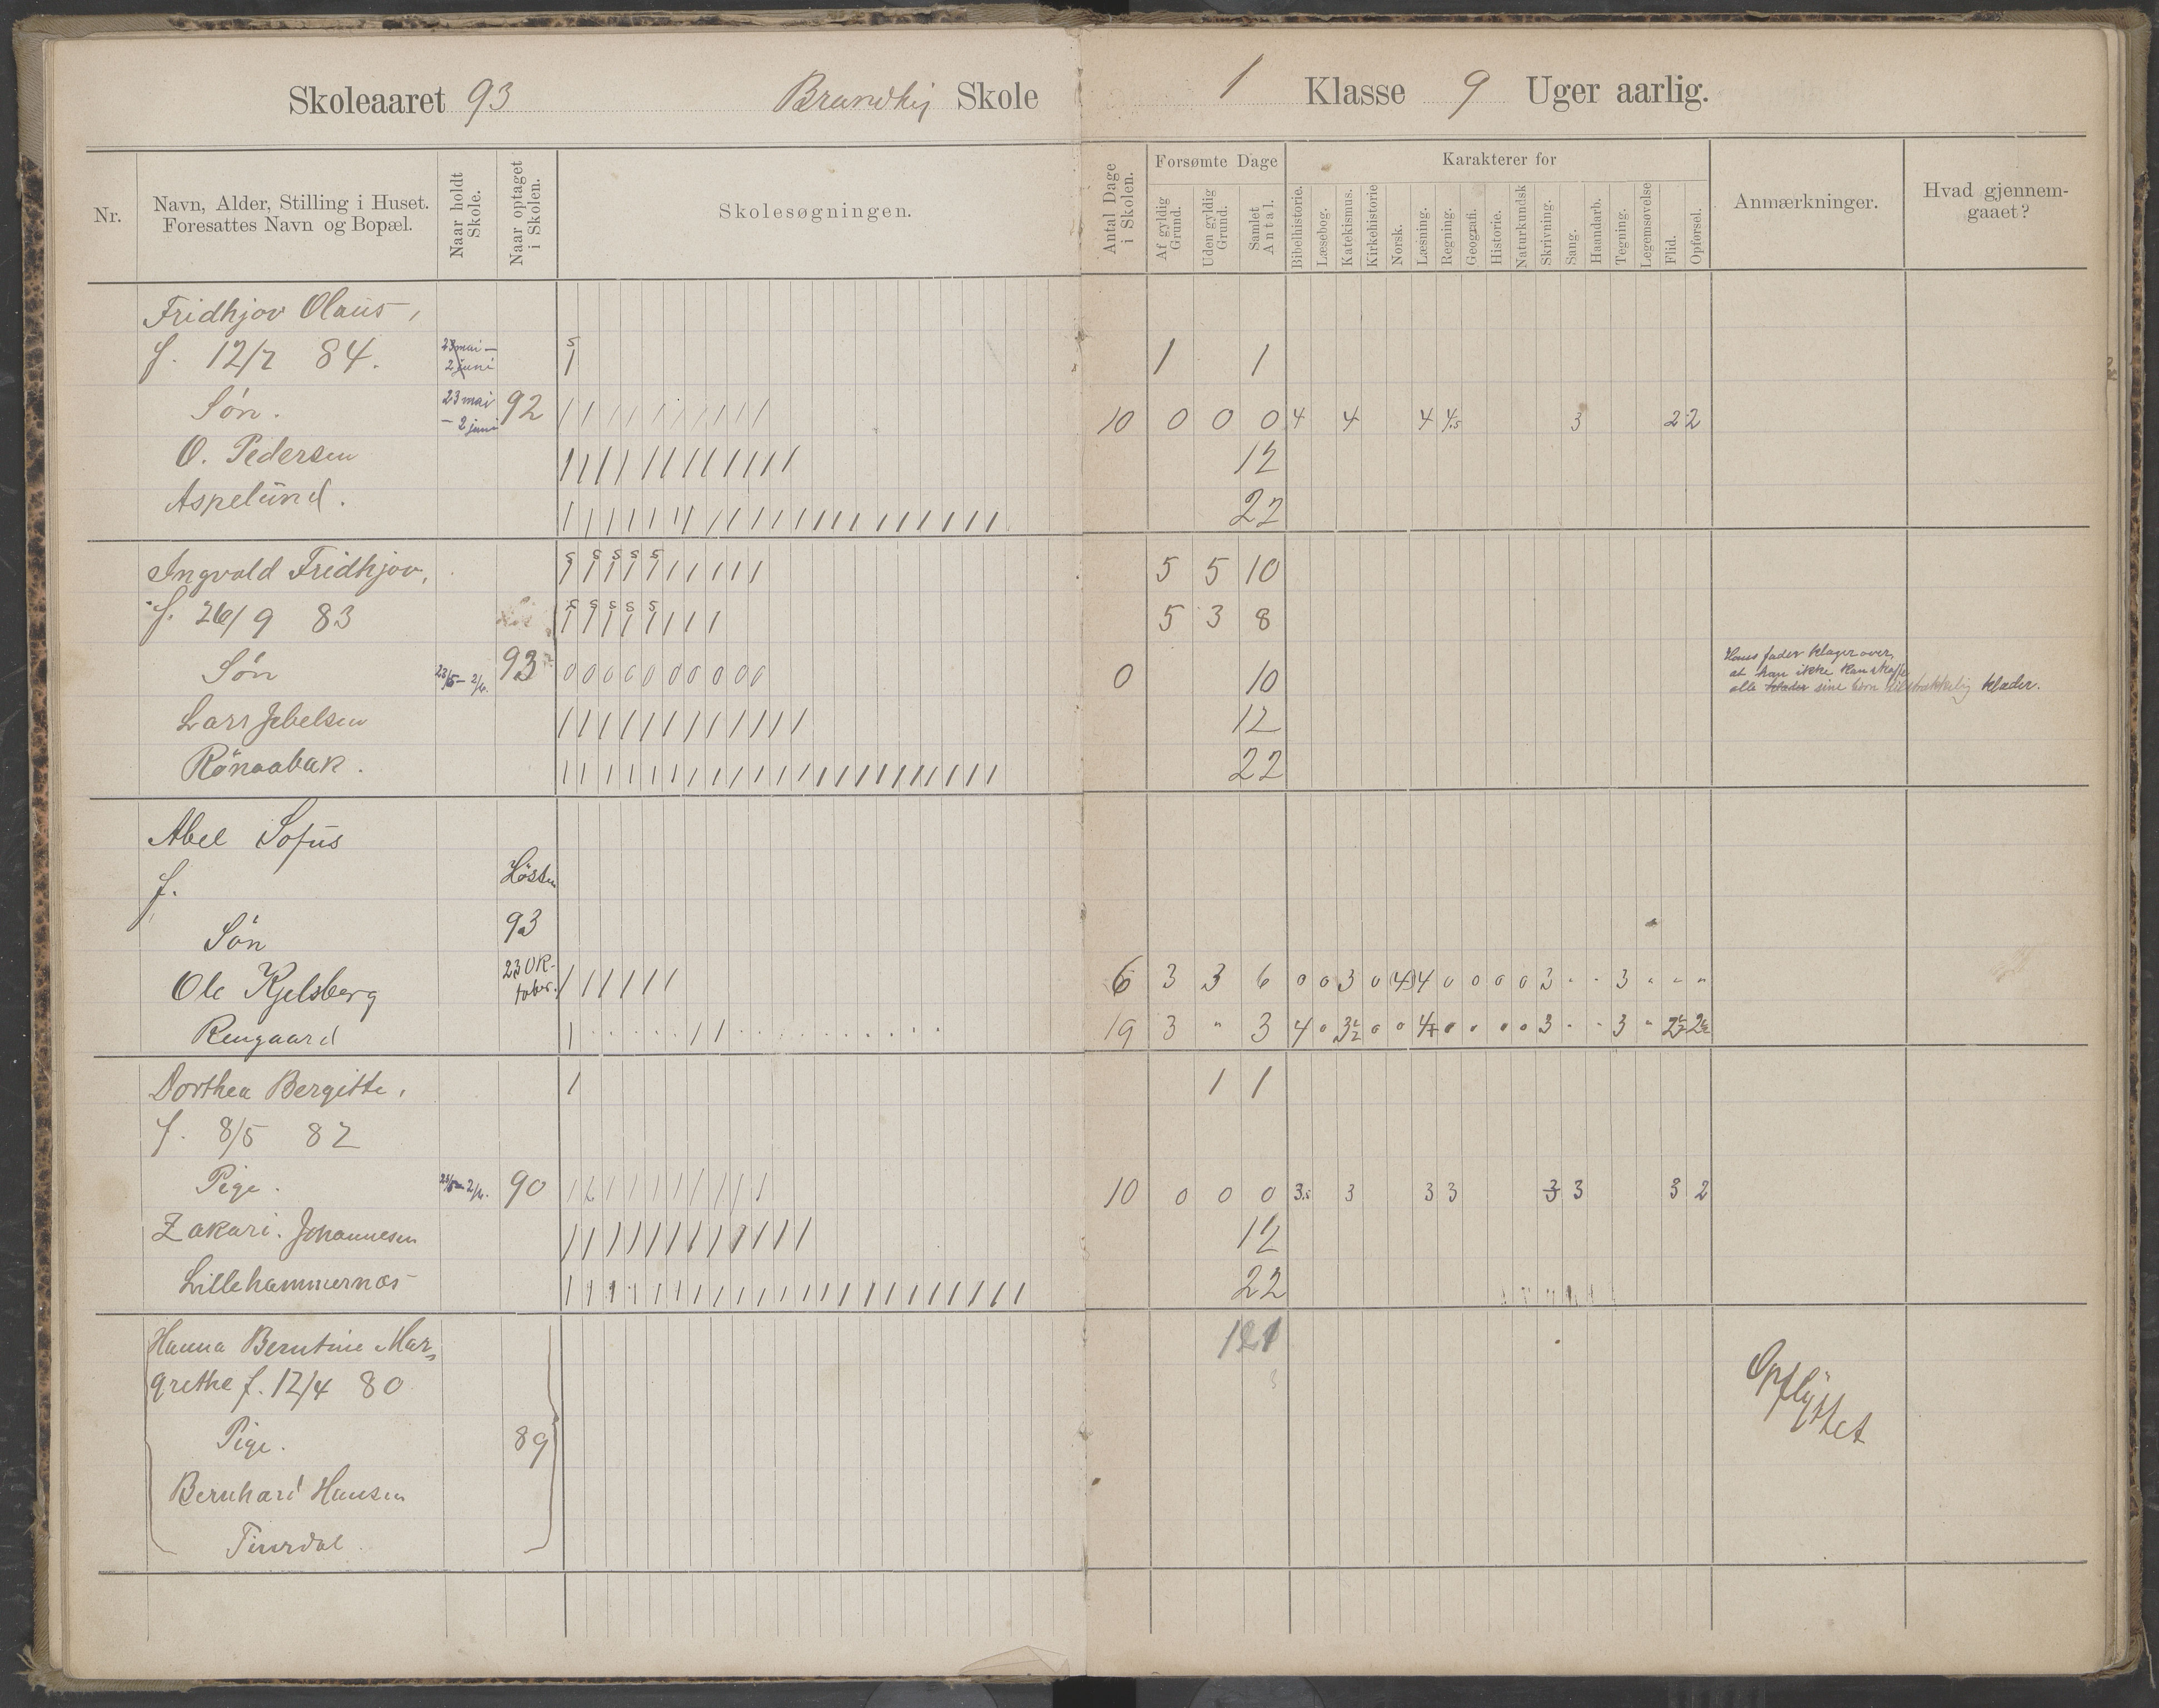 Skoleaaret 93 Skole
1 Klasse 9 Uger aarlig.
Nr.
Navn, Alder, Stilling i Huset.
Foresattes Navn og Bopæl.
Naar holdt
Skole.
Naar optaget
i Skolen.
Skolesøgningen.
Antal Dage
i Skolen.
Forsømte Dage
Af gyldig
Grund.
Uden gyldig
Grund.
Samlet
Antal.
Karakterer for
Bibelhistorie.
Læsebog.
Katekismus.
Kirkehistorie
Norsk.
Læsning.
Regning.
Geografi.
Historie.
Naturkundsk
Skrivning.
Sang.
Haandarb.
Tegning.
Legemsøvelse
Flid.
Opførsel.
Anmærkninger.
Hvad gjennem-
gaaet?
Fridhjov Olaus,
f. 12/7 84. 23 mai - 2 juni 1 1
Søn. 23 mai - 2 juni 92 10 0 0 0 4 4 4 4.5 3 2 2
O. Pedersen 12
Aspelund. 22
Ingvald Fridhjov, 5 5 10
f. 26/9 83 5 3 8
Søn 23/5 - 2/6. 93 0 0 0 0 0 0 0 0 0 0 0 10
Hans fader klager over,
at han ikke kan skaffe
alle klæder sine børn tilstrækkelig klæder.
Lars Jebelsen 12
Rönaabak. 22
Abel Sofus
f. Høsten
Søn 93
Ole Kjelsberg 23 Ok-
tober. 6 3 3 6 0 0 3 0 (4) 4 0 0 0 0 3 - - 3 " " "
Rengaard 19 3 " 3 4 0 3½ 0 0 4 0 0 0 0 3 - - 3 " 2½ 2½
Dorthea Bergitte, 1 1
f. 8/5 82
Pige. 23/5 - 2/6. 90 10 0 0 0 3.5 3 3 3 3 3 3 2
Zakari. Johannesen 12
Lillehammernæs 22
Hanna Berntine Mar=
grethe f. 12/4 80
Pige. 89
Opflyttet
Bernhard Hansen